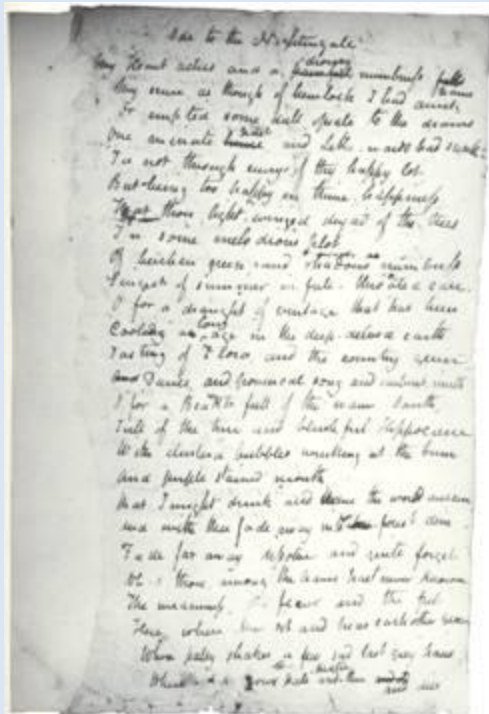 Ode to the Nightingale
My Heart aches and a drowsy painful numbness falls
My sense as though of hemlock I had drunk
Or emptied some dull opiate to the drains
One minute since and Lethe-wards had sunk
Tis not through envy of thy happy lot
But being too happy in thine happiness
That thou light-winged dryad of the trees
In some melodious plot
Of beechen green and shadows numberless
Singest of summer in full-throated ease.
O for a draught of vintage that has been
Cooling an age in the deep-delved earth
Tasting of Flora and the country green
And Dance, and provencal song and sunburnt mirth
O for a Beaker full of the warm South,
Full of the true and blushful Hippocrene
With cluster'd bubbles winking at the brim
And purple stained mouth
That I might drink and leave the world unseen
And with thee fade away into the forest dim
Fade far away dissolve and quite forget
What thou among the leaves hast never known
The weariness, the fever and the fret
Here, where men sit and hear each other groan
Where palsy shakes a few sad last grey hairs
Where youth grows pale and thin and